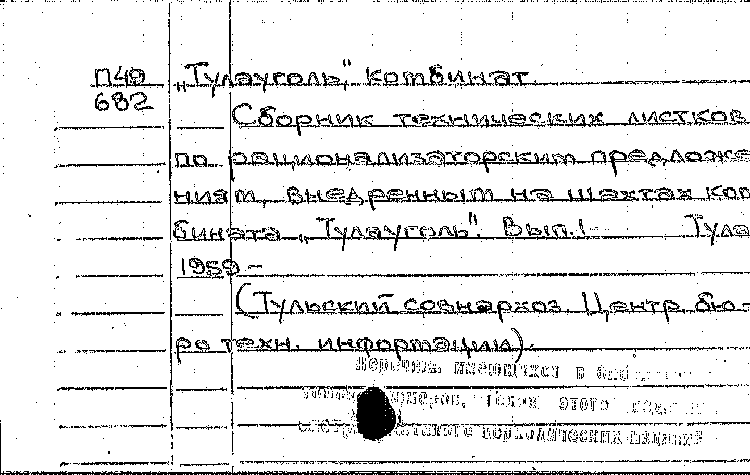 П49 „Тулауголь“, комбинат.
682
Сборник технических листков
по рационализаторским предложе
ниям, внедренным на шахтах ком
бината „Тулауголь“. Вып.1- Тула
1959-
(Тульский совнархоз. Центр. бю-
ро техн. информации).
Перечень имеющихся в
этого
периодических изданий